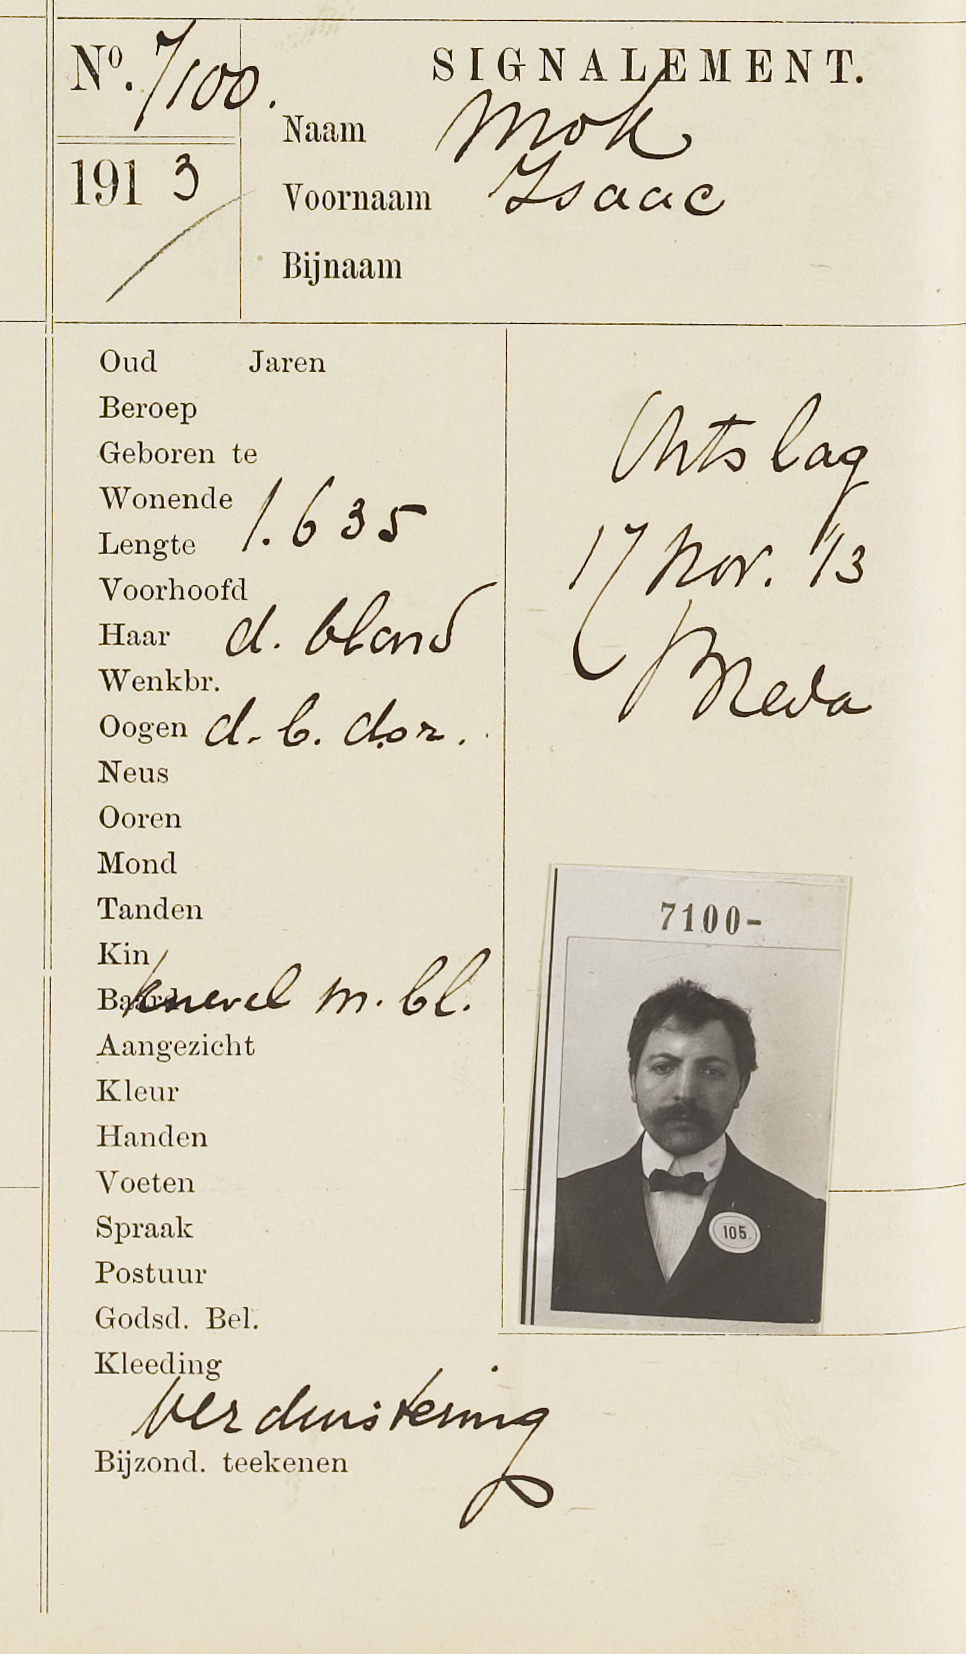 Nº. 7100.
1913
SIGNALEMENT.
Naam Mok
Voornaam Isaac
Bijnaam
Oud Jaren
Beroep
Geboren te
Wonende
Lengte 1.635
Voorhoofd
Haar d. blond
Wenkbr.
Oogen d. b. dor.
Neus
Ooren
Mond
Tanden
Kin
Baard knevel m. bl.
Aangezicht
Kleur
Handen
Voeten
Spraak
Postuur
Godsd. Bel.
Kleeding
Verduistering
Bijzond. teekenen
Ontslag
17 Nov. '13
Breda
7100-
105.